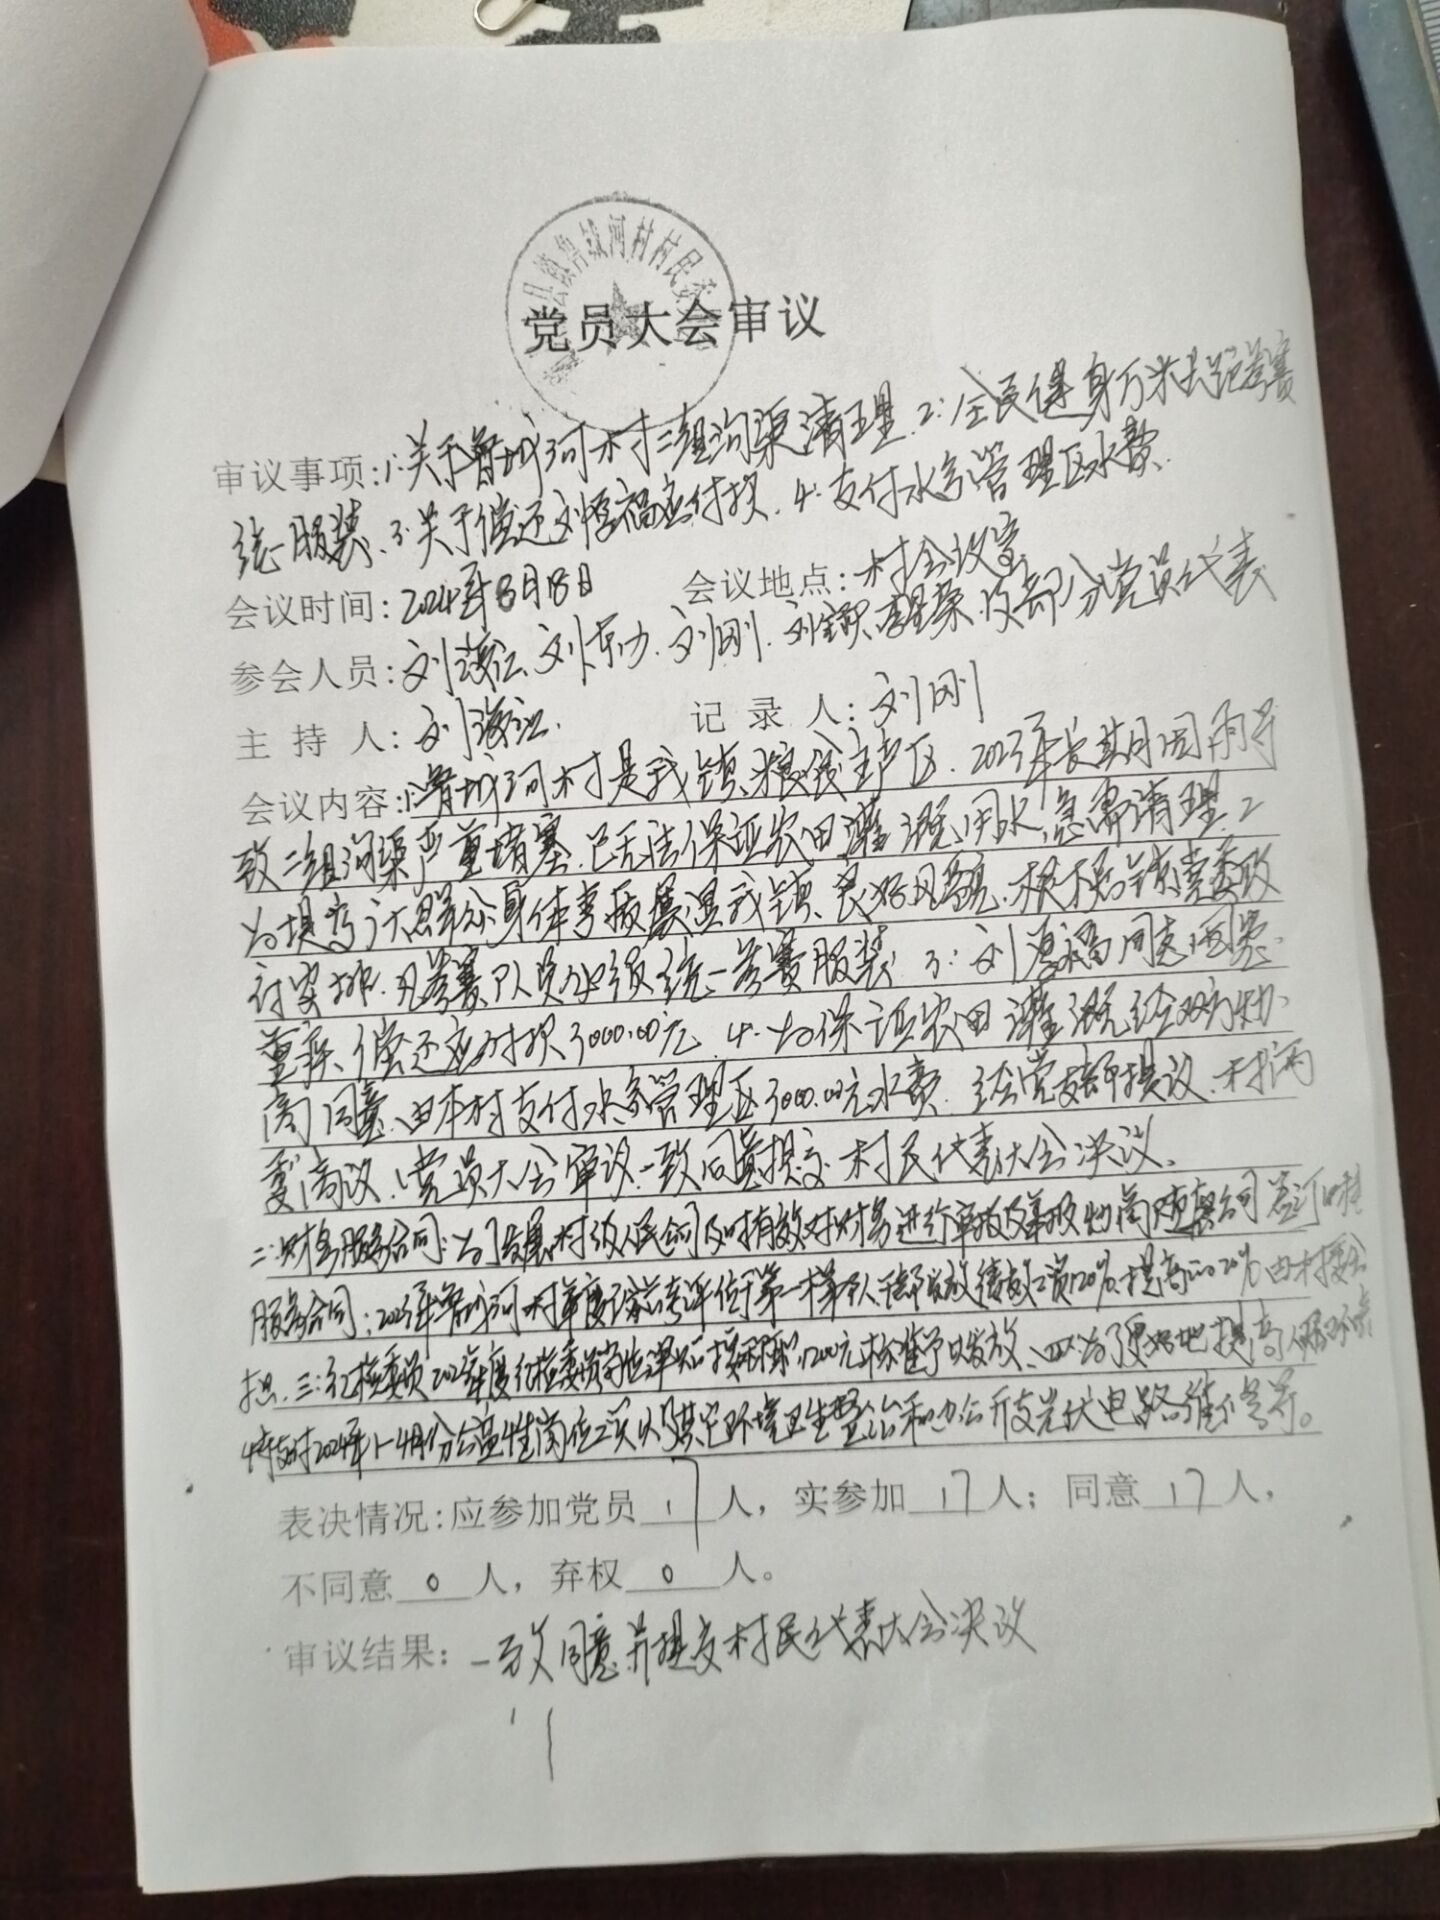 鲁城河村村民委
党员大会审议
审议事项:1:关于鲁城河村二组沟渠清理.2:全民健身万米长跑参赛
统一服装、3:关于偿还刘福应付款.4:支付水务管理区水费.
会议时间:2024年8月18日 会议地点:村会议室
参会人员:刘海江、刘东力.刘刚.刘李星荣.及部分党员代表
主 持 人:刘海江. 记 录 人:刘刚
会议内容:1:鲁城河村是我镇粮食主产区.2023年长期因雨导
致二组沟渠严重堵塞.已无法保证农田灌溉用水,急需清理.2
为提高广大群众身体素质展混我镇、良好风貌.根据镇党委政
府安排.凡参赛队员必须统一参赛服装 3:刘福同志因患
重疾、偿还应付款3000.00元.4.为保证农田灌溉经双方协
商同意.由本村支付水务管理区3000.00元水费.经党支部提议.村两
委商议.党员大会审议.一致同意提交村民代表大会决议.
二:财务服务合同:为了村级人民合同及时有效对财务进行审核及合同签订
服务合同:2023年鲁城河村年度考评位于第一梯队.干部发放绩效工资120%.提高20%由村
担.三:纪检委员2023年度纪检委员1200元标准予以发放.四:为了更好地提高人居环境
支付2024年1-4月份公益性岗位工资以及其它环境卫生整治和办公开支光伏电路维修等.
表决情况:应参加党员 17 人，实参加 17 人；同意 17 人，
不同意 0 人，弃权 0 人。
审议结果：一致同意并提交村民代表大会决议